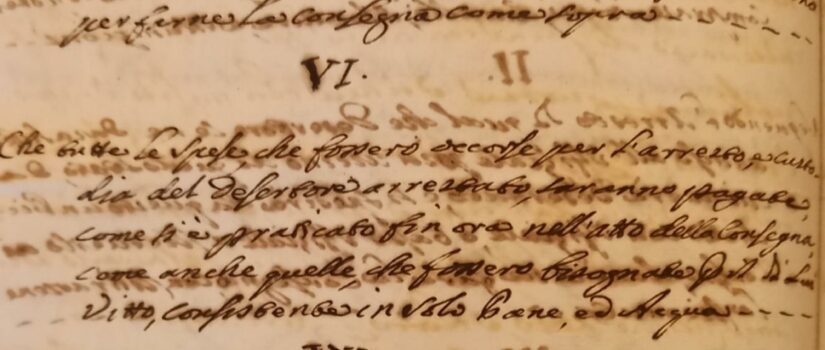 per farne la Consegna come sopra
VI.
Che tutte le spese, che fossero occorse per l'arresto, e custo-
dia del desertore arrestato, saranno pagate,
come si è praticato fin ora nell'atto della Consegna,
come anche quelle, che fossero bisognate p il di Lui
Vitto, Consistente in solo Pane, ed Acqua